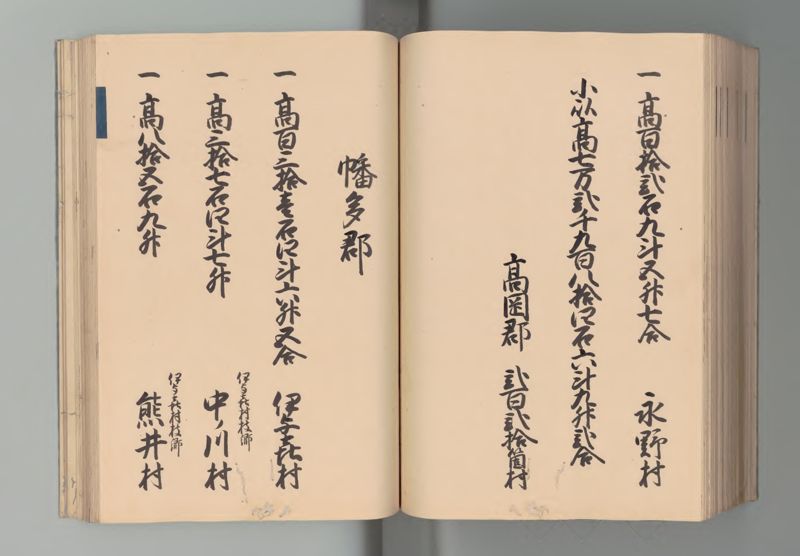 一 高百拾弐石九斗五升七合 永野村
小以高七万弐千九百八拾四石六斗九升弐合
高岡郡 弐百弐拾箇村
幡多郡
一 高百三拾壱石四斗六升五合 伊与喜村
一 高三拾七石四斗七升 伊与喜村枝郷 中ノ川村
一 高八拾五石九升 伊与喜村枝郷 熊井村